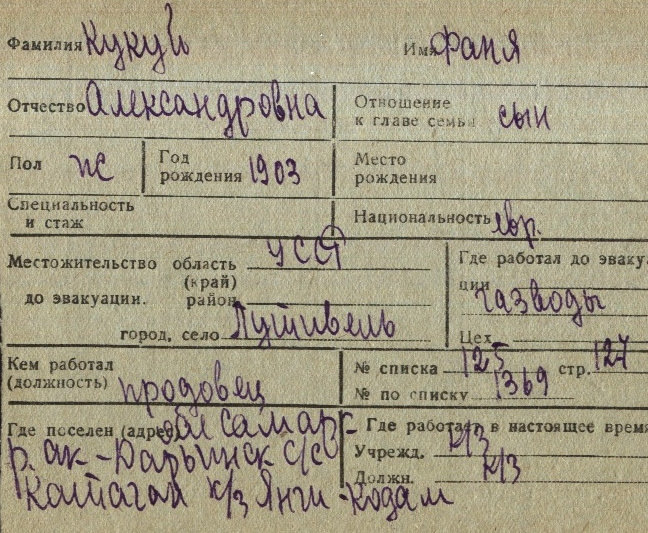 Фамилия Кукуй Имя Фаня
Отчество Александровна Отношение к главе семьи сын
Пол ж Год рождения 1903 Место рождения
Специальность и стаж Национальность евр.
Местожительство область УССР Где работал до эвакуа
(край) ции
до эвакуации. район газводы
город, село Путивель Цех
Кем работал № списка 125 стр. 127
(должность) продовец № по списку 1369
Где поселен (адрес) обл самарк Где работает в настоящее время
р. ак-Дарьинск с/с Учрежд. к/з
Должн. к/з
Катаган к/з Янги-Кодам